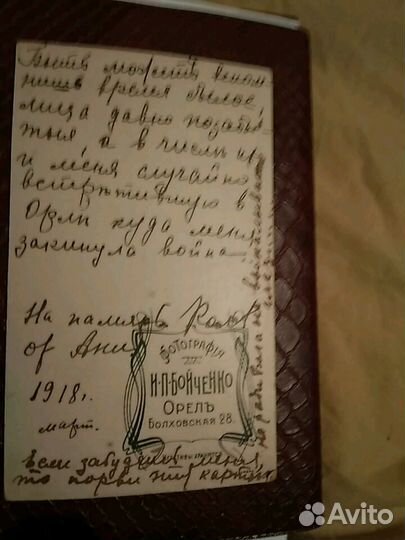 Быть можетъ вспом
нишь время былое
лица давно позабы
тыя а в числе их
и меня случайно
встретившую в
Орле куда меня
закинула война
На память Коле
от Ани
1918 г.
март.
ФОТОГРАФІЯ
И·П·БОЙЧЕНКО
ОРЕЛЪ
Болховская 28.
Если забудешь меня
то порви эту карточку
не ради Бога не выкалывай
глаз
Avito